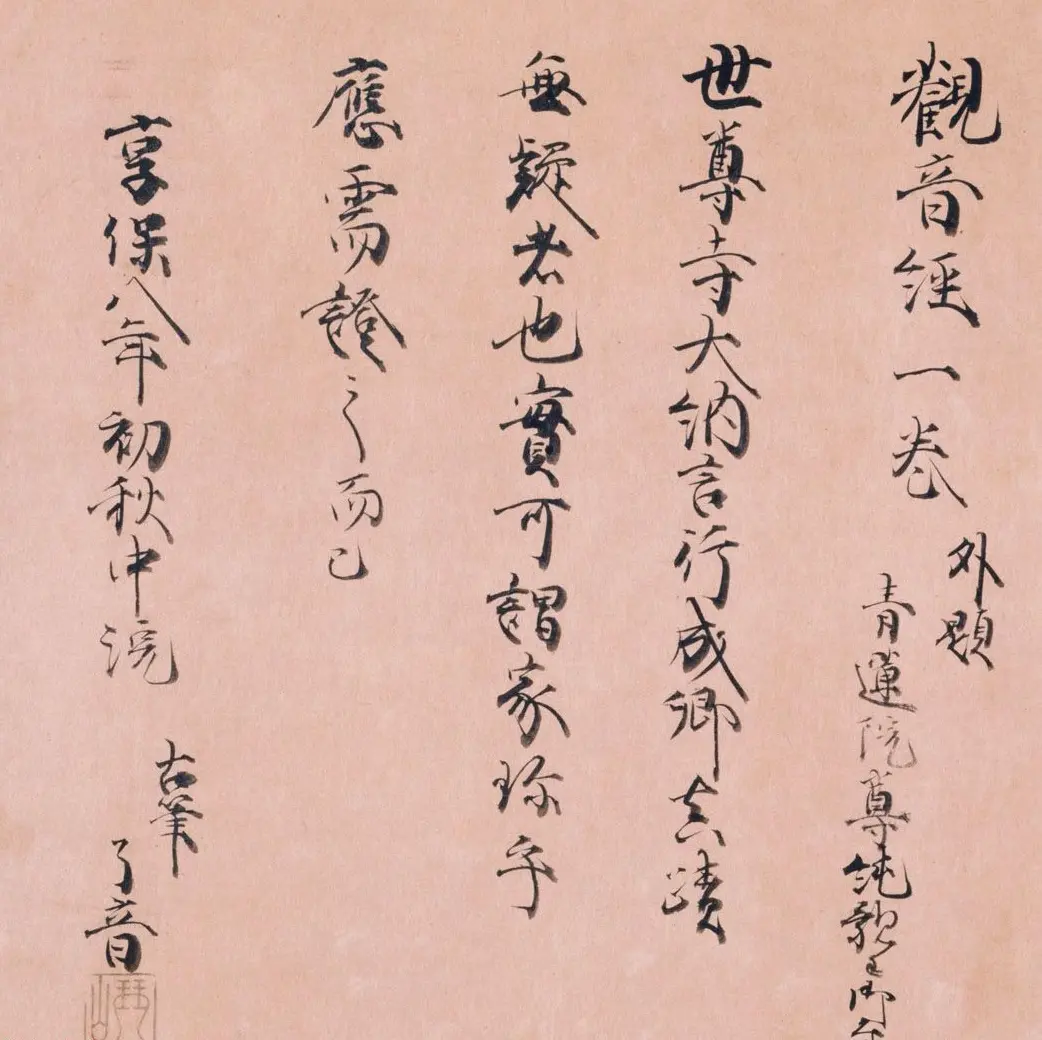 觀音經一卷
外題
青蓮院尊純親王御
世尊寺大納言行成卿真蹟
無疑者也實可謂家珍乎
應需證之而已
享保八年初秋中浣
古筆
了音